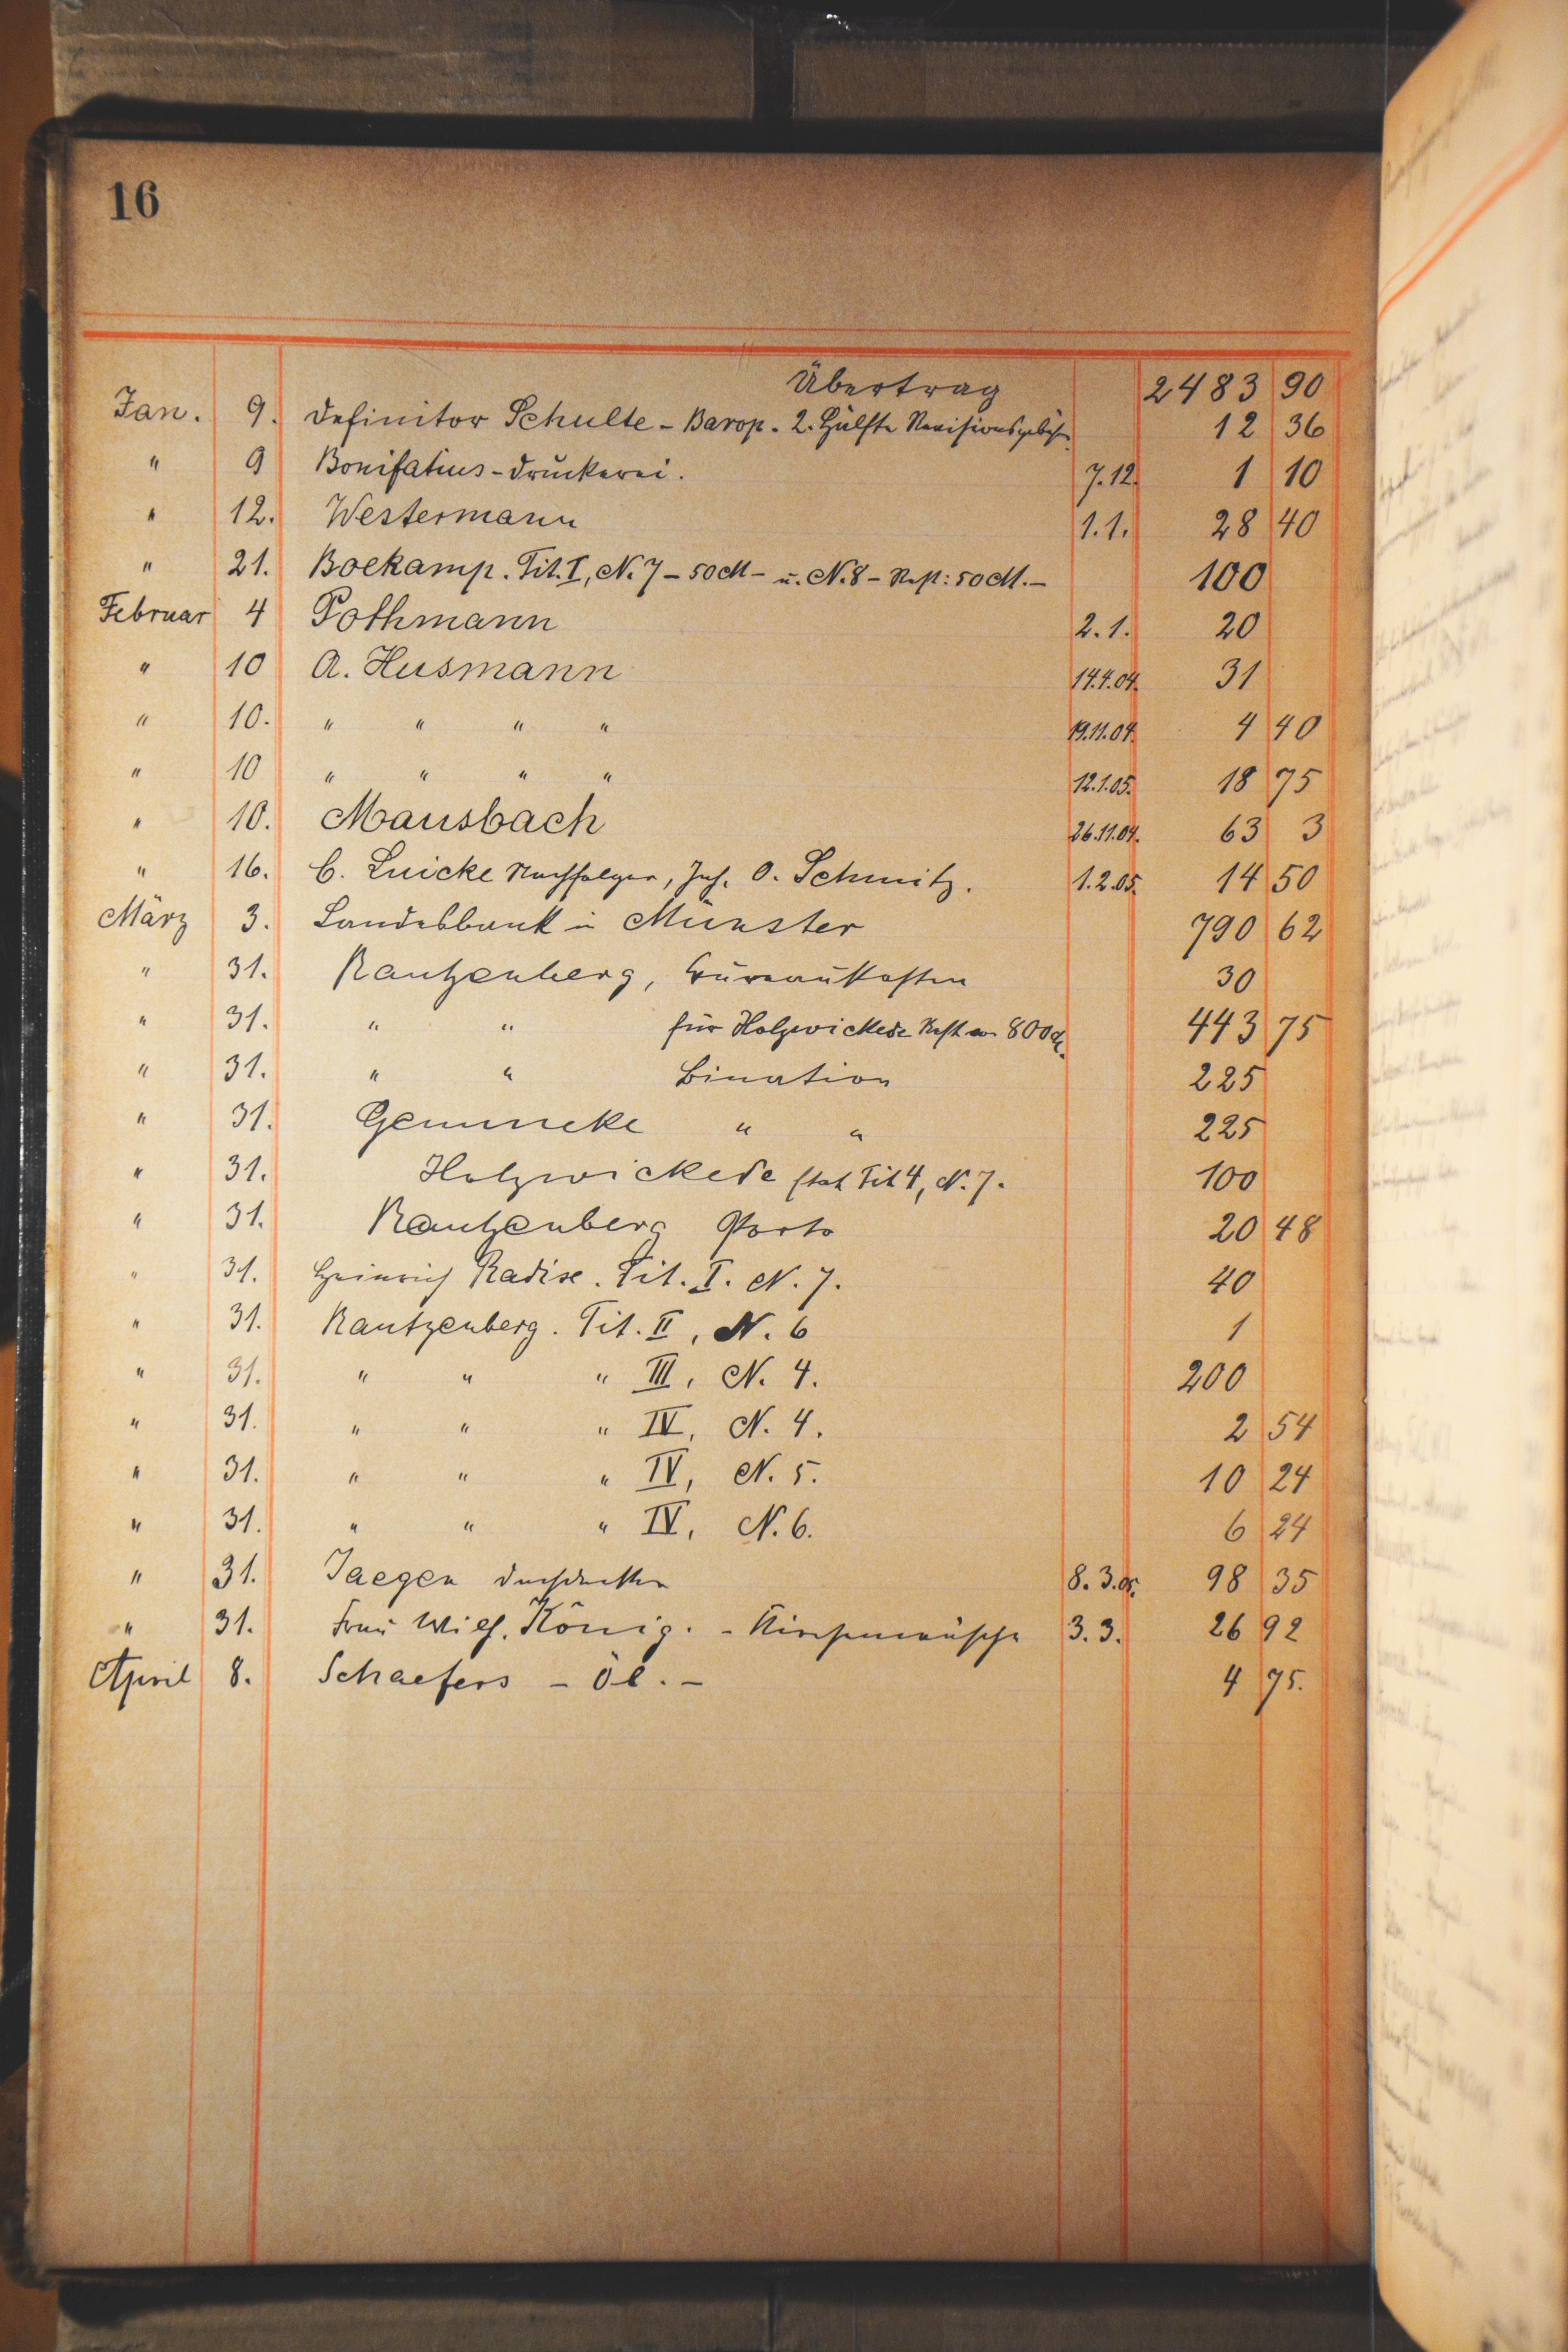 16
Übertrag 2483 90
Jan. 9. Definitor Schulte - Barop. 2. Hälfte Revisionsgebühr 12 36
" 9 Bonifatius-Druckerei. 7.12. 1 10
" 12. Westermann 1.1. 28 40
" 21. Boekamp. Tit. I, N. 7 - 50 M - u. N. 8 - Rest: 50 M. - 100
Februar 4 Pothmann 2.1. 20
" 10 A. Husmann 14.4.04. 31
" 10. " " " " 19.11.04. 4 40
" 10 " " " " 12.1.05. 18 75
" 10. Mausbach 26.11.04. 63 3
" 16. C. Luicke Nachfolger, Inh. O. Schmitz. 1.2.05. 14 50
März 3. Landesbank in Münster 790 62
" 31. Rantzenberg, Bureaukosten 30
" 31. " " für Holzwickede Rest von 800 M. 443 75
" 31. " " Bination 225
" 31. Gemmeke " " 225
" 31. Holzwickede Tit 4, N. 7. 100
" 31. Rantzenberg Porto 20 48
" 31. Heinrich Radise. Tit. I. N. 7. 40
" 31. Rantzenberg. Tit. II, N. 6 1
" 31. " " " III, N. 4. 200
" 31. " " " IV, N. 4. 2 54
" 31. " " " IV, N. 5. 10 24
" 31. " " " IV, N. 6. 6 24
" 31. Jaeger 8.3.05. 98 35
" 31. Frau Wilh. König. - Kirchenwäsche 3.3. 26 92
April 8. Schaefers - Öl. - 4 75.